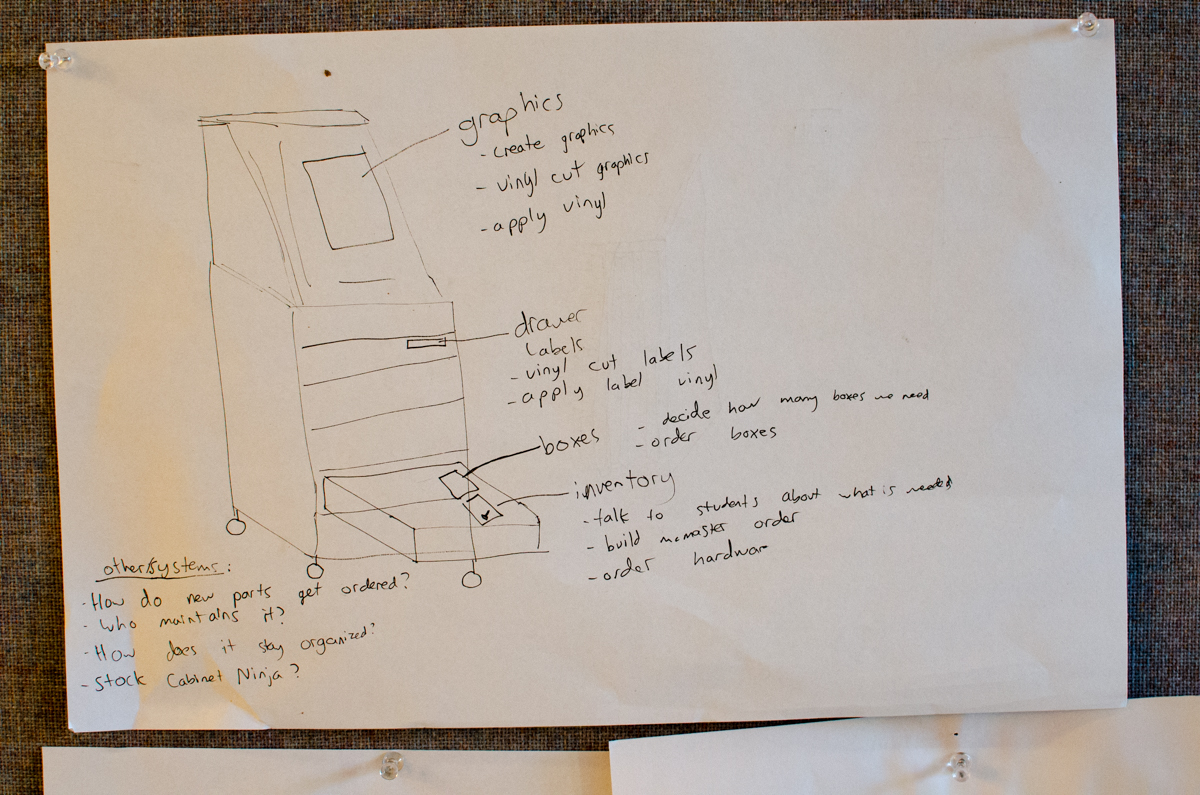 graphics
- create graphics
- vinyl cut graphics
- apply vinyl
drawer
labels
- vinyl cut labels
- apply label vinyl
boxes
- decide how many boxes we need
- order boxes
inventory
- talk to students about what is needed
- build mcmaster order
- order hardware
other/systems:
- How do new parts get ordered?
- who maintains it?
- How does it stay organized?
- Stock Cabinet Ninja?